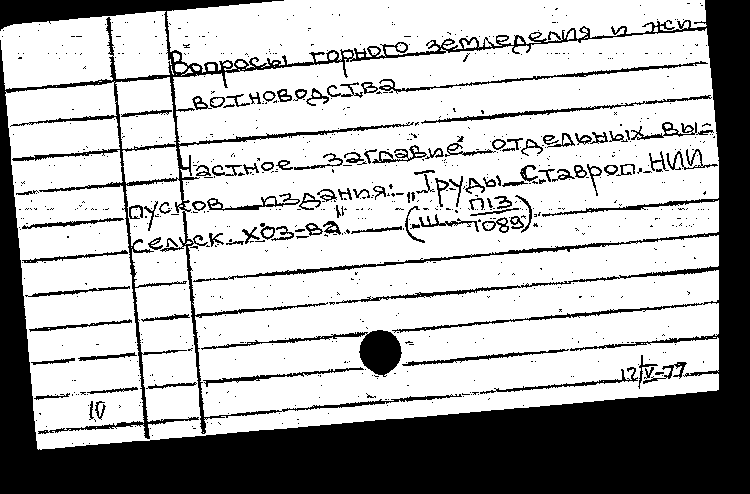 Вопросы горного земледелия и жи-
вотноводства
Частное заглавие отдельных вы-
пусков издания: „Труды Ставроп. НИИ
сельск. хоз-ва". (Ш. П13/1089).
12/V-77
10